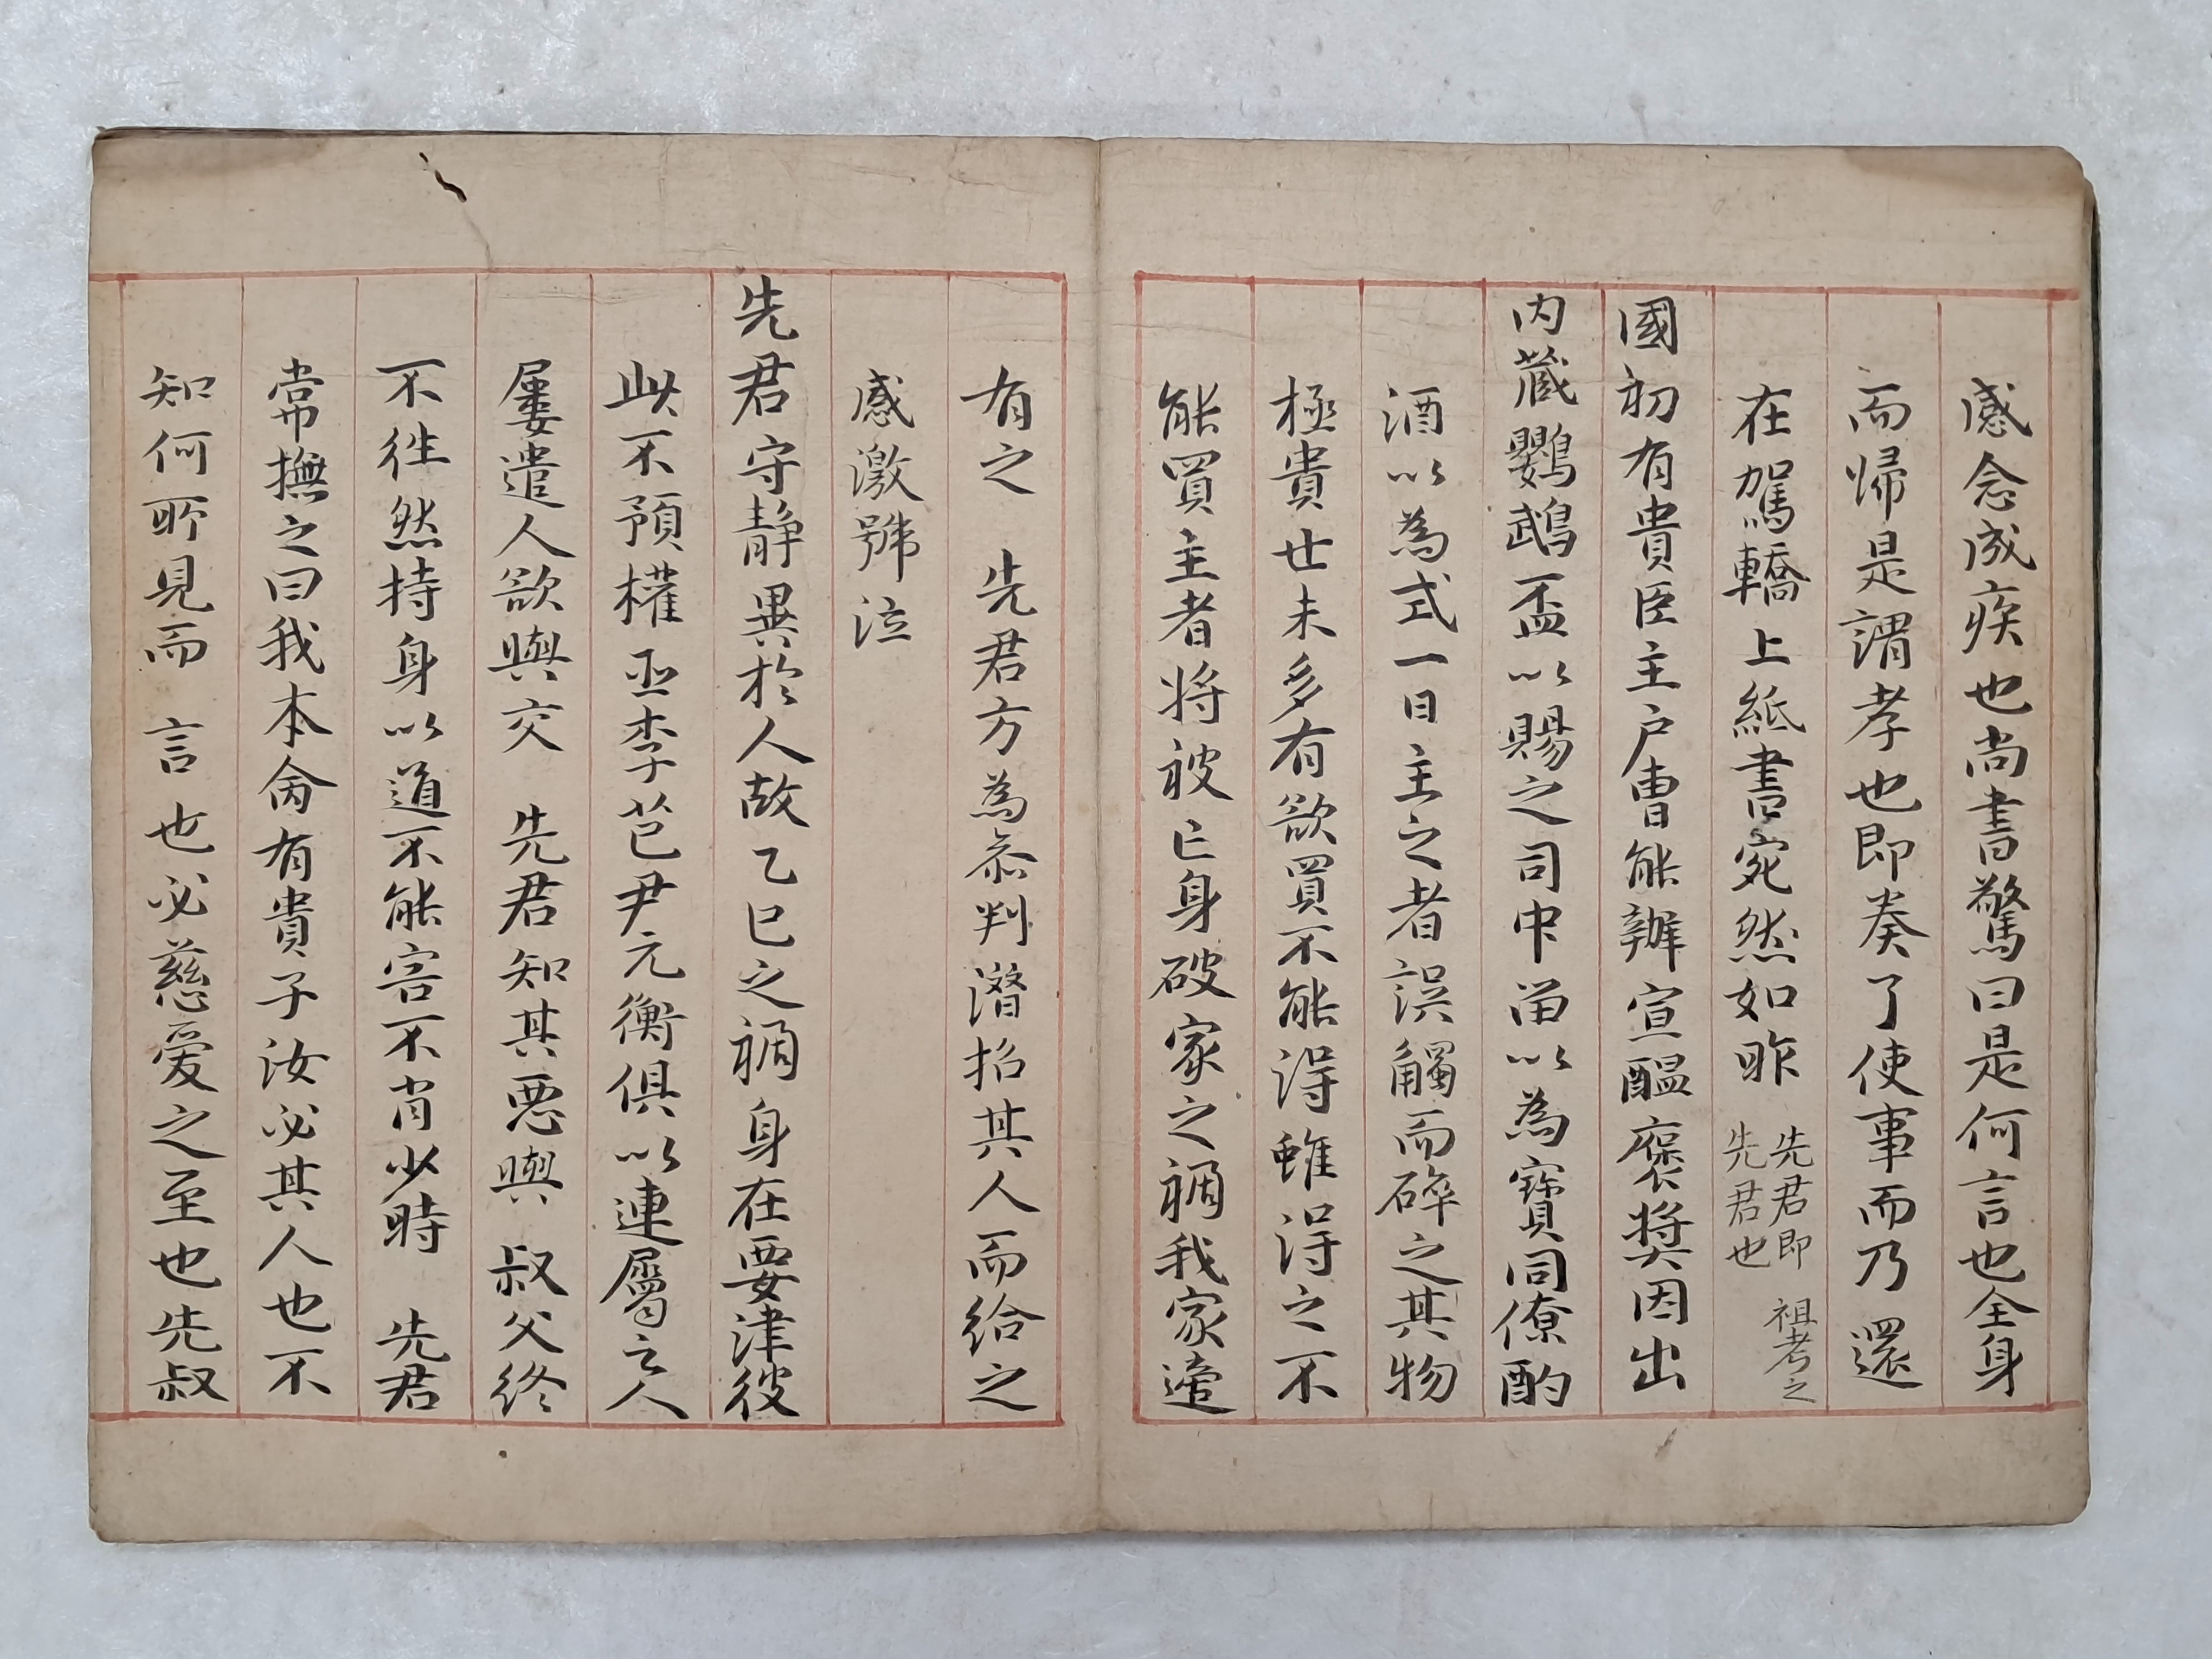 感念成疾也尚書驚曰是何言也全身
而歸是謂孝也即奏了使事而乃還
在駕轎上紙書宛然如昨
先君即 祖考之
先君也
國初有貴臣主戶曹能辦宣醞褒奬因出
内藏鸚鵡盃以賜之司中畱以為寶同僚酌
酒以為式一日主之者誤觸而碎之其物
極貴世未多有欲買不能得雖得之不
能買主者將被亡身破家之禍我家適
有之 先君方為叅判潛招其人而給之
感激號泣
先君守静異於人故乙巳之禍身在要津彼
此不預權臣李芑尹元衡俱以連屬之人
屢遣人欲與交 先君知其惡與 叔父終
不徃然持身以道不能害不肖少時 先君
常撫之曰我本禽有貴子汝必其人也不
知何所見而 言也必慈爱之至也先叔